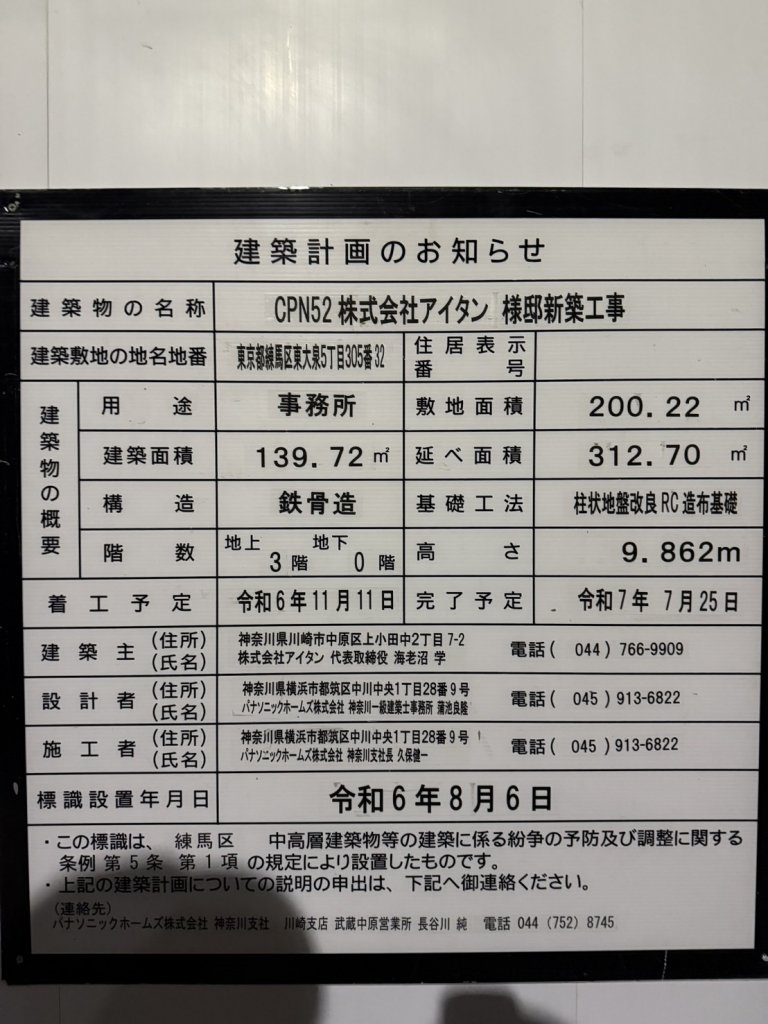 建築計画のお知らせ
建築物の名称 CPN52 株式会社アイタン 様邸新築工事
建築敷地の地名地番 東京都練馬区東大泉5丁目305番32 住居表示番号
建築物の概要
用途 事務所 敷地面積 200.22 ㎡
建築面積 139.72 ㎡ 延べ面積 312.70 ㎡
構造 鉄骨造 基礎工法 柱状地盤改良RC造布基礎
階数 地上 3階 地下 0階 高さ 9.862m
着工予定 令和6年11月11日 完了予定 令和7年 7月25日
建築主 (住所) 神奈川県川崎市中原区上小田中2丁目7-2 電話( 044) 766-9909
(氏名) 株式会社アイタン 代表取締役 海老沼 学
設計者 (住所) 神奈川県横浜市都筑区中川中央1丁目28番9号 電話( 045) 913-6822
(氏名) パナソニックホームズ株式会社 神奈川一級建築士事務所 蒲池良隆
施工者 (住所) 神奈川県横浜市都筑区中川中央1丁目28番9号 電話( 045) 913-6822
(氏名) パナソニックホームズ株式会社 神奈川支社長 久保健一
標識設置年月日 令和6年8月6日
・この標識は、 練馬区 中高層建築物等の建築に係る紛争の予防及び調整に関する
条例 第5条 第1項 の規定により設置したものです。
・上記の建築計画についての説明の申出は、下記へ御連絡ください。
(連絡先)
パナソニックホームズ株式会社 神奈川支社 川崎支店 武蔵中原営業所 長谷川 純 電話 044 (752) 8745